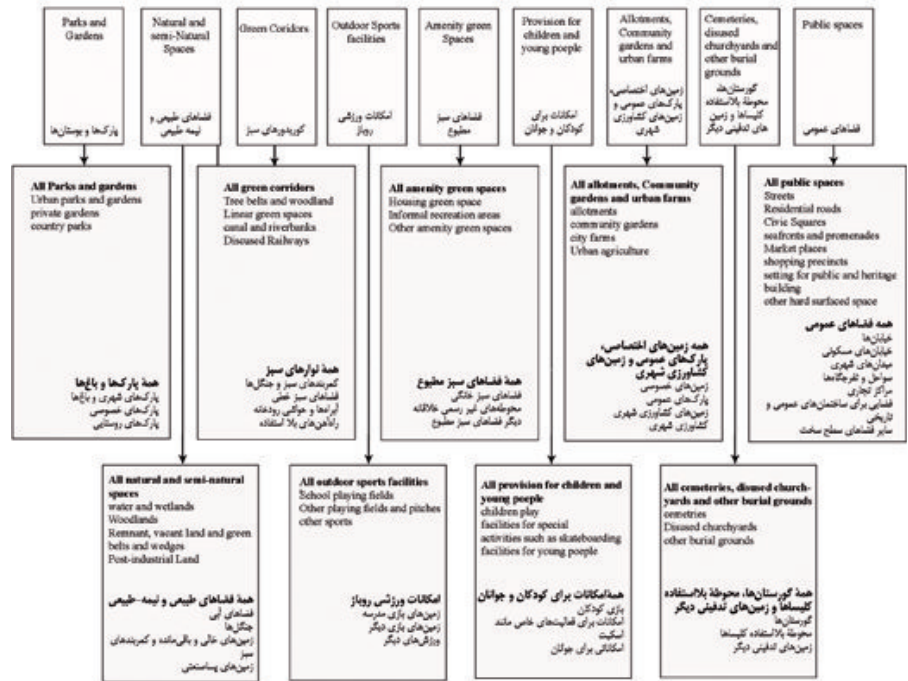 Parks and
Gardens
پارک‌ها و بوستان‌ها
Natural and
semi-Natural
Spaces
فضاهای طبیعی و
نیمه طبیعی
Green Coridors
کوریدورهای سبز
Outdoor Sports
facilities
امکانات ورزشی
روباز
Amenity green
Spaces
فضاهای سبز
مطبوع
Provision for
children and
young poeple
امکانات برای
کودکان و جوانان
Allotments,
Community
gardens and
urban farms
زمین‌های اختصاصی،
پارک‌های عمومی و
زمین‌های کشاورزی
شهری
Cemeteries,
disused
churchyards and
other burial
grounds
گورستان‌ها،
محوطهٔ بلااستفاده
کلیساها و زمین
های تدفینی دیگر
Public spaces
فضاهای عمومی
All Parks and gardens
Urban parks and gardens
private gardens
country parks
همهٔ پارک‌ها و باغ‌ها
پارک‌های شهری و باغ‌ها
پارک‌های خصوسی
پارک‌های روستایی
All green corridors
Tree belts and woodland
Linear green spaces
canal and riverbanks
Discused Railways
همهٔ نوارهای سبز
کمربندهای سبز و جنگل‌ها
فضاهای سبز خطی
آبراه‌ها و حواشی رودخانه
راه‌آهن‌های بلا استفاده
All amenity green spaces
Housing green space
Informal recreation areas
Other amenity green spaces
همهٔ فضاهای سبز مطبوع
فضاهای سبز خانگی
محوطه‌های غیر رسمی خلاقانه
دیگر فضاهای سبز مطبوع
All allotments, Community
gardens and urban farms
allotments
community gardens
city farms
Urban agriculture
همه زمین‌های اختصاصی،
پارک‌های عمومی و زمین‌های
کشاورزی شهری
زمین‌های خصوسی
پارک‌های عمومی
زمین‌های کشاورزی شهری
کشاورزی شهری
All public spaces
Streets
Residential roads
Civic Squares
seafronts and promenades
Market places
shopping precincts
setting for public and heritage
building
other hard surfaced space
همه فضاهای عمومی
خیابان‌ها
خیابان‌های مسکونی
میدان‌های شهری
سواحل و تفرجگاه‌ها
مراکز تجاری
فضایی برای ساختمان‌های عمومی و
تاریخی
سایر فضاهای سطح سخت
All natural and semi-natural
spaces
water and wetlands
Woodlands
Remnant, vacant land and green
belts and wedges
Post-industrial Land
همهٔ فضاهای طبیعی و نیمه-طبیعی
فضاهای آبی
جنگل‌ها
زمین‌های خالی و باقی‌مانده و کمربندهای
سبز
زمین‌های پساصنعتی
All outdoor sports facilities
School playing fields
Other playing fields and pitches
other sports
امکانات ورزشی روباز
زمین‌های بازی مدرسه
زمین‌های بازی دیگر
ورزش‌های دیگر
All provision for children and
young poeple
children play
facilities for special
activities such as skateboarding
facilities for young poeple
همهٔامکانات برای کودکان و جوانان
بازی کودکان
امکانات برای فعالیت‌های خاص مانند
اسکیت
امکاناتی برای جوانان
All cemeteries, disused church-
yards and other burial grounds
cemetries
Disused churchyards
other burial grounds
همهٔ گورستان‌ها، محوطهٔ بلااستفاده
کلیساها و زمین‌های تدفینی دیگر
گورستان‌ها
محوطهٔ بلااستفاده کلیساها
زمین‌های تدفینی دیگر